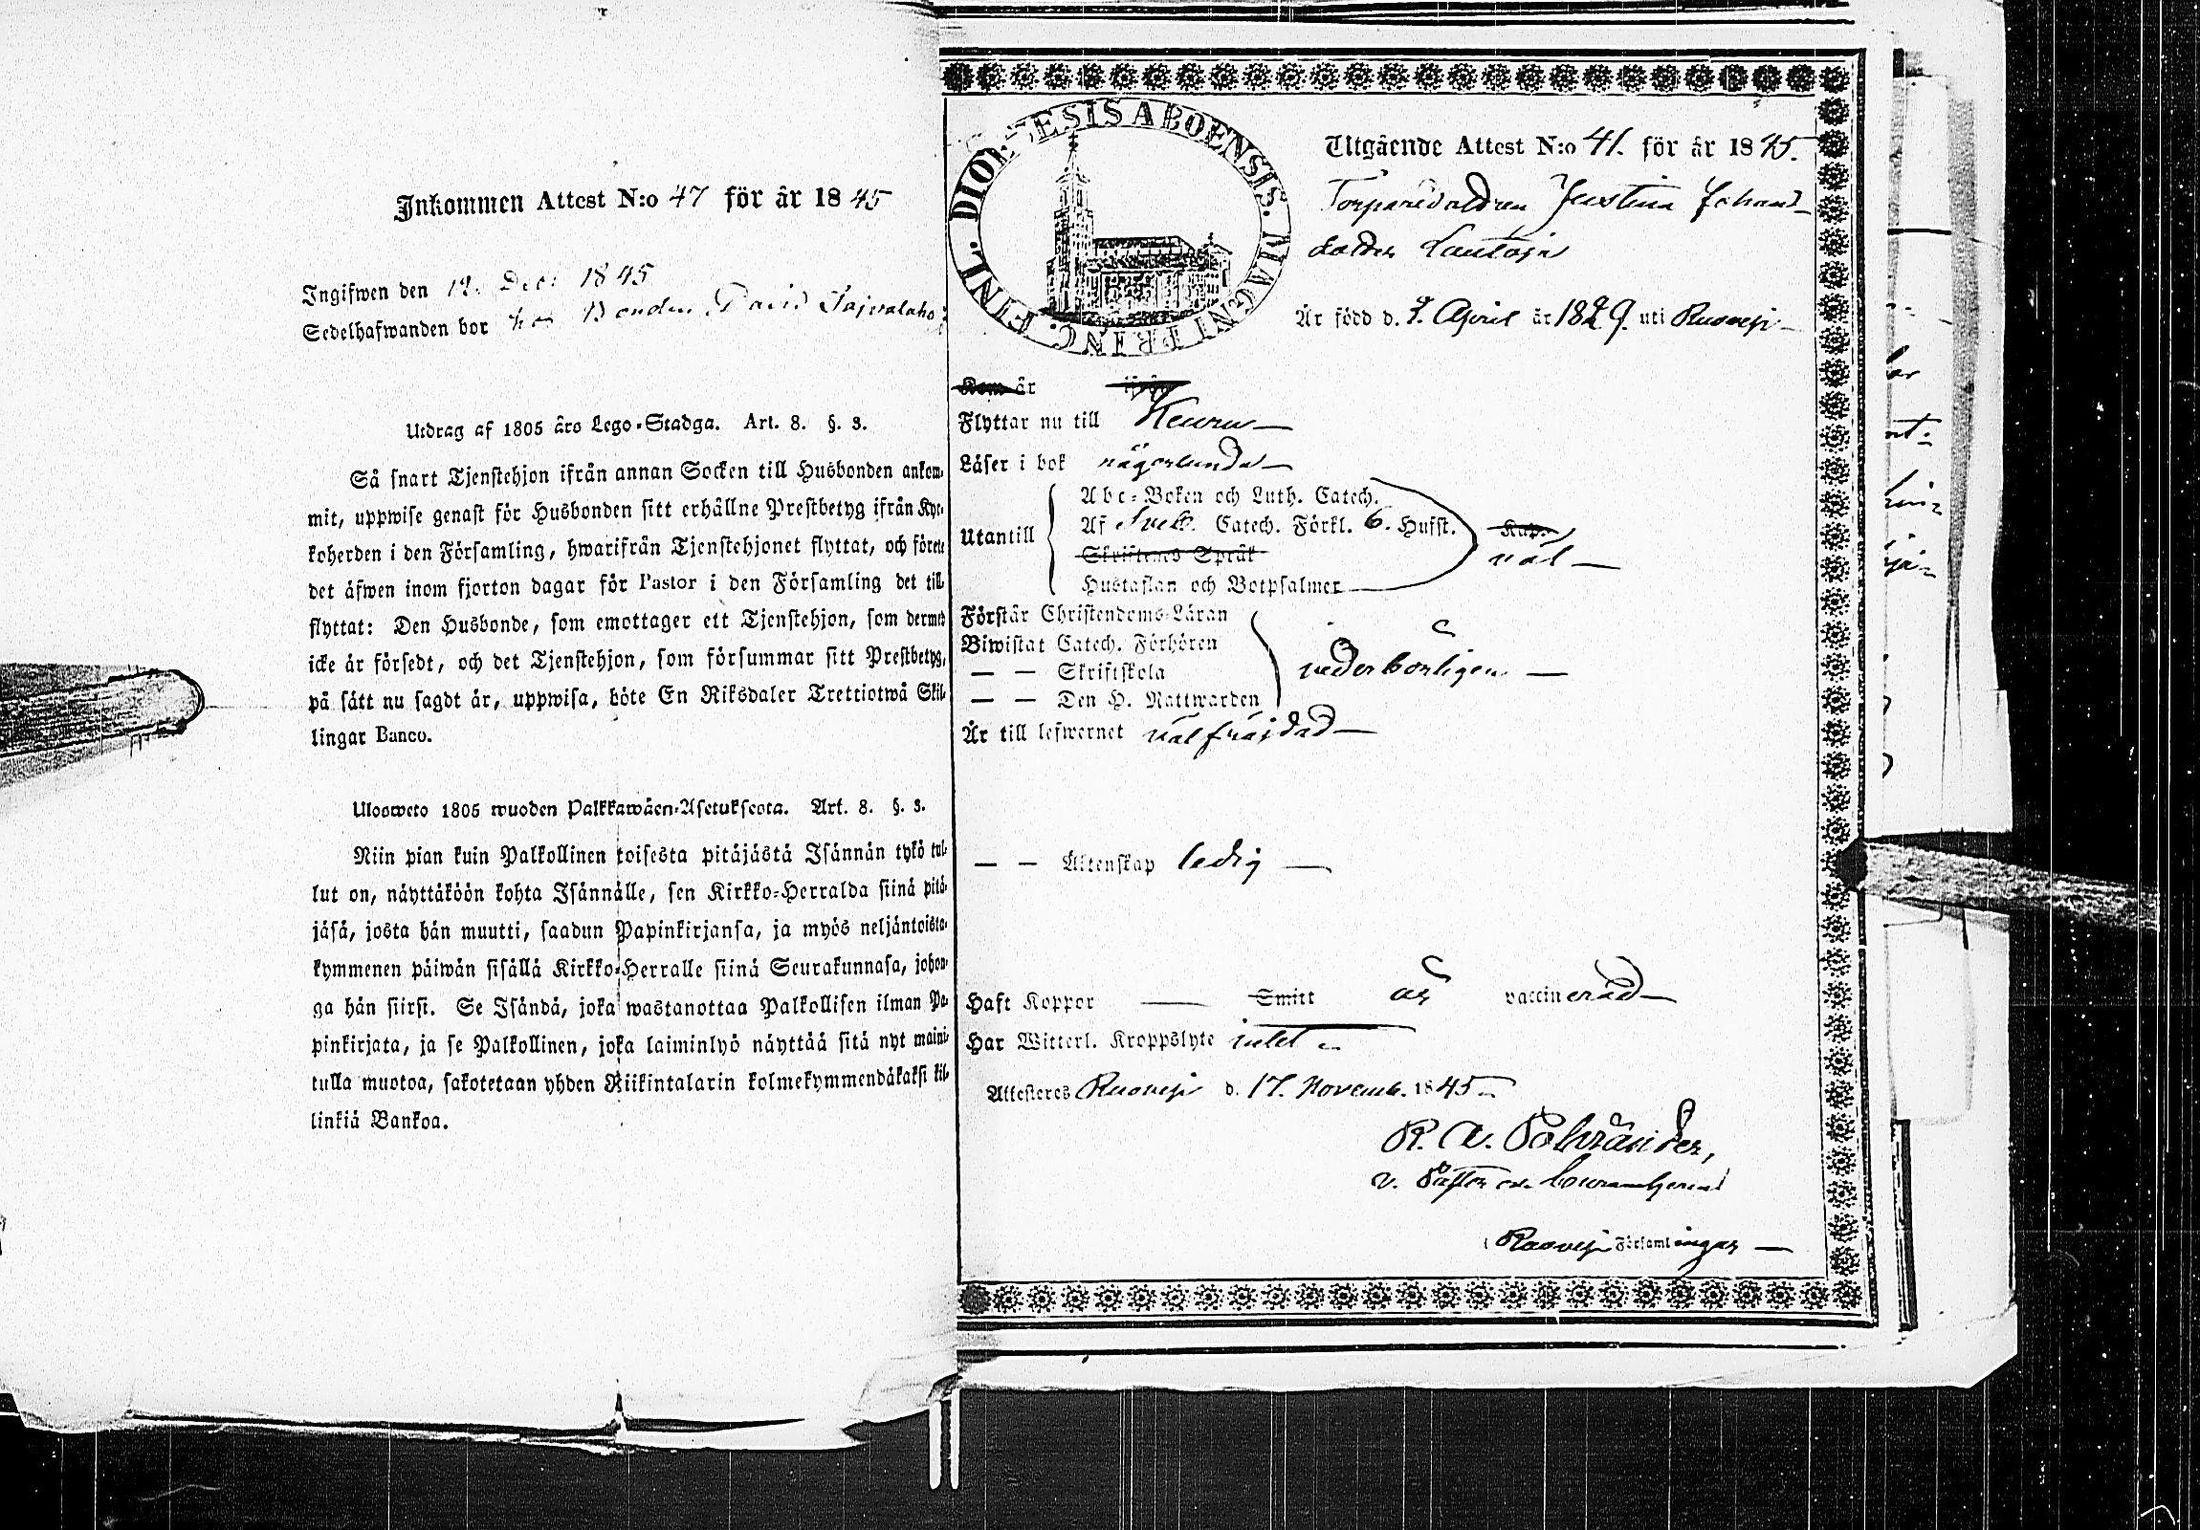 Inkommen Attest N:o 47 för år 1845
Ingifwen den 12. Dec: 1845
Sedelhafwanden bor hos Bonden David
Utdrag af 1805 års Lego-Stadga. Art. 8. §. 3.
Så snart Tjenstehjon ifrån annan Socken till Husbonden ankom-
mit, uppwise genast för Husbonden sitt erhållne Prestbetyg ifrån Kyr-
koherden i den Församling, hwarifrån Tjenstehjonet flyttat, och förete
det äfwen inom fjorton dagar för Pastor i den Församling det till-
flyttat: Den Husbonde, som emottager ett Tjenstehjon, som dermed
icke är försedt, och det Tjenstehjon, som försummar sitt Prestbetyg,
på sätt nu sagdt är, uppwisa, böte En Riksdaler Trettiotwå Skil-
lingar Banco.
Ulosweto 1805 wuoden Palkkawäen-Asetuksesta. Art. 8. §. 3.
Niin pian kuin Palkollinen toisesta pitäjästä Isännän tykö tul-
lut on, näyttäköön kohta Isännälle, sen Kirkko-Herralda siinä pitä-
jäsä, josta hän muutti, saadun Papinkirjansa, ja myös neljäntoista-
kymmenen päiwän sisällä Kirkko-Herralle siinä Seurakunnasa, johon-
ga hän siirsi. Se Isändä, joka wastanottaa Palkollisen ilman Pa-
pinkirjata, ja se Palkollinen, joka laiminlyö näyttää sitä nyt maini-
tulla muotoa, sakotetaan yhden Riikintalarin kolmekymmendäkaksi kil-
linkiä Bankoa.
DIOECESIS ABOENSIS. MAGNI PRINC. FINL.
Utgående Attest N:o 41. för år 1845.
Torparedottren Justina Johans-
dotter Lautoja
Är född d. 9. April år 1829. uti Ruovesi
Kom år ifrån
Flyttar nu till Keuru
Läser i bok någorlunda
Utantill
Abc-Boken och Luth. Catech.
Af Sveb. Catech. Förkl. 6. Hufst. Kap.
Skriftenes Språk väl
Hustaflan och Botpsalmer
Förstår Christendoms-Läran
Biwistat Catech. Förhören
— — Skriftskola vederbörligen
— — Den H. Nattwarden
Är till lefwernet välfräjdad
— — Äktenskap ledig
Haft Koppor — Smitt är vaccinerad
Har Witterl. Kroppslyte intet
Attesteras Ruovesi d. 17. Novemb. 1845
R. A. Pohránder,
v. Pastor
i Ruovesi Församlingar